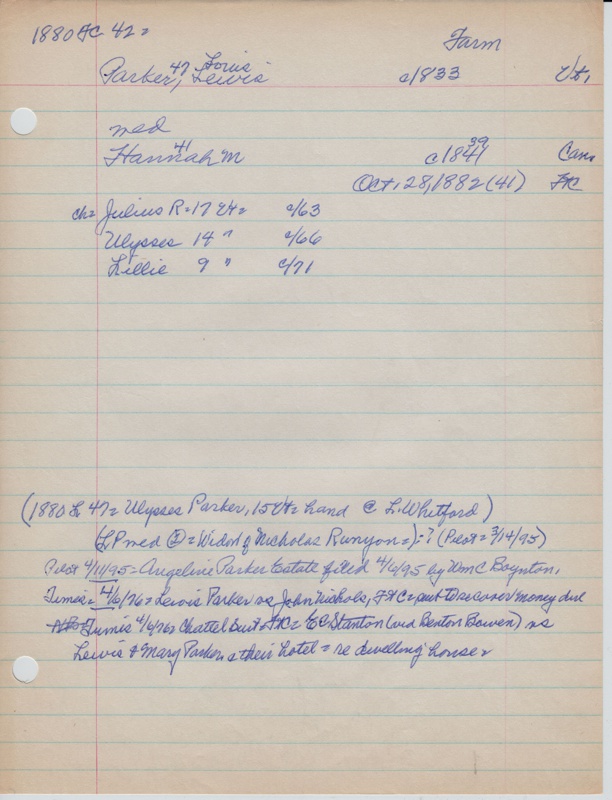 1880 FC 42=
Farm
Parker, 47 Louis Lewis c1833 Vt.
med
Hannah 41 M c1841 39 Can.
Oct. 28, 1882 (41) FC
ch= Julius R=17 Vt= c/63
Ulysses 14 " c/66
Lillie 9 " c/71
(1880 L 47= Ulysses Parker, 15 Vt= hand @ L. Whitford)
(L.P. med ②= Widow of Nicholas Runyon=)-? (Pilot= 3/14/95)
Pilot 4/11/95= Angeline Parker Estate filed 4/6/95 by Wm C Boynton.
Times= 4/6/76= Lewis Parker vs John Nichols, FC= suit to recover money due
Times 4/6/76= Chattel Suit FC= E C Stanton (via Benton Bowen) vs
Lewis & Mary Parker & their hotel= re dwelling house=